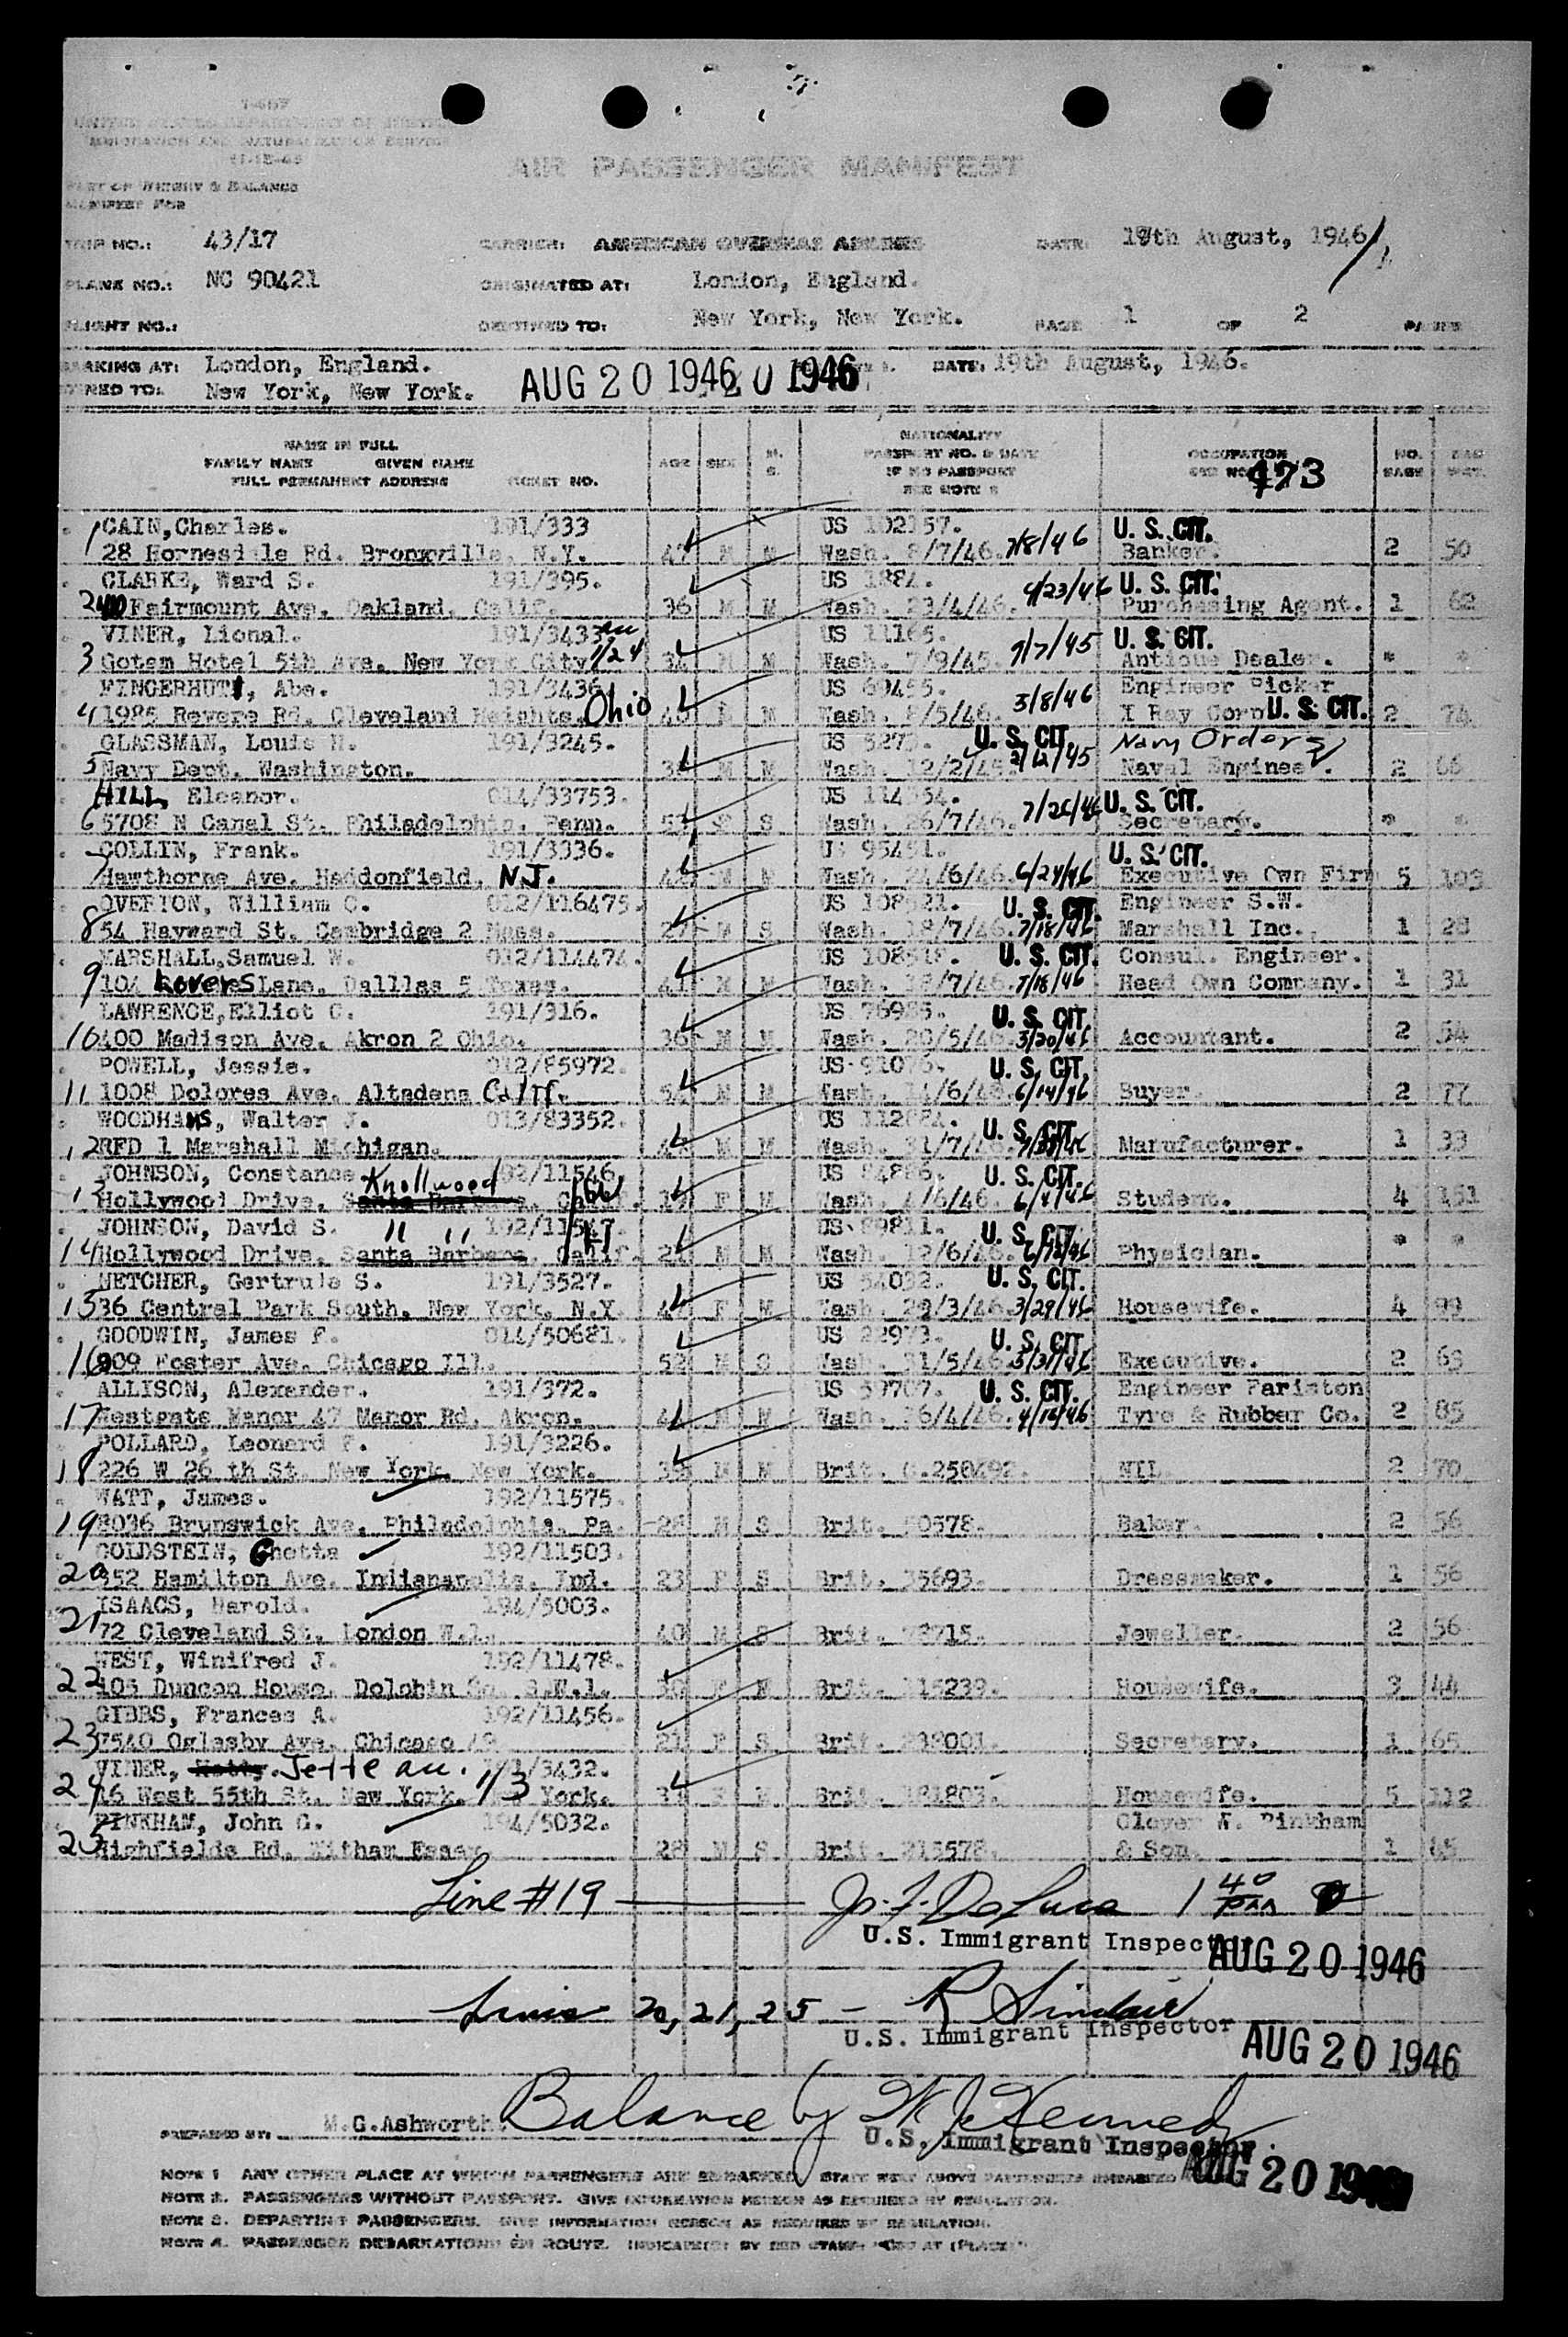 UNITED STATES DEPARTMENT OF JUSTICE
IMMIGRATION AND NATURALIZATION SERVICE
AIR PASSENGER MANIFEST
PART OF WEIGHT & BALANCE
MANIFEST FOR
TRIP NO.: 43/17 CARRIER: AMERICAN OVERSEAS AIRLINES DATE: 19th August, 1946
PLANE NO.: NC 90421 ORIGINATED AT: London, England.
FLIGHT NO.: DESTINED TO: New York, New York. PAGE 1 OF 2 PAGES
London, England. DATE: 19th August, 1946.
New York, New York. AUG 20 1946 20 1946
NAME IN FULL NATIONALITY
FAMILY NAME GIVEN NAME AGE SEX M. S. PASSPORT NO. & DATE OCCUPATION NO.
FULL PERMANENT ADDRESS TICKET NO. IF NO PASSPORT 473
SEE NOTE
1 CAIN, Charles. 191/333 US 102157. U. S. CIT.
28 Hornesdale Rd. Bronxville, N.Y. 47 M M Wash. 8/7/46. 7/8/46 Banker. 2 50
CLARKE, Ward S. 191/395. US 1884. U. S. CIT.
2 Fairmount Ave. Oakland, Calif. 36 M M Wash. 23/4/46. 4/23/46 Purchasing Agent. 1 62
VINER, Lional. 191/3433 US 11165. U. S. CIT.
3 Gotam Hotel 5th Ave. New York City 1/24 M M Wash. 7/9/45. 9/7/45 Antique Dealer. * *
FINGERHUT, Abe. 191/3436 US 69455. Engineer Picker
4 1985 Revere Rd. Cleveland Heights. Ohio M M Wash. 8/5/46. 3/8/46 X Ray Corp U. S. CIT. 2 74
GLASSMAN, Louis H. 191/3245. U. S. CIT. Navy Orders
5 Navy Dept. Washington. M M Wash. 12/2/45 Naval Engineer. 2 66
HILL, Eleanor. 014/33753. US 114364. U. S. CIT.
6 5708 N Canal St. Philadelphia, Penn. F S Wash. 26/7/46. 7/26/46 Secretary. * *
COLLIN, Frank. 191/3336. US 95451. U. S. CIT.
7 Hawthorne Ave. Haddonfield. N.J. M M Wash. 24/6/46. 6/24/46 Executive Own Firm 5 103
OVERTON, William C. 012/116475. US 108521. U. S. CIT. Engineer S.W.
8 54 Hayward St. Cambridge 2 Mass. 27 M S Wash. 18/7/46. 7/18/46 Marshall Inc. 1 28
MARSHALL, Samuel W. 012/114474. US 108518. U. S. CIT. Consul. Engineer.
9 104 Lovers Lane. Dalllas 5 Texas. 41 M M Wash. 18/7/46. 7/18/46 Head Own Company. 1 31
LAWRENCE, Elliot C. 191/316. US 76985. U. S. CIT.
10 400 Madison Ave. Akron 2 Ohio. 36 M M Wash. 20/5/46. 3/20/46 Accountant. 2 54
POWELL, Jessie. 012/85972. US 91076. U. S. CIT.
11 1008 Dolores Ave. Altadena Calif. M M Wash. 14/6/46. 6/14/46 Buyer. 2 77
WOODHAMS, Walter J. 013/83352. US 112882. U. S. CIT.
12 RFD 1 Marshall Michigan. M M Wash. 31/7/46 Manufacturer. 1 33
JOHNSON, Constance Knollwood 192/11546. US 84886. U. S. CIT.
13 Hollywood Drive, Santa Barbara, Calif. 19 F M Wash. 4/6/46. 6/4/46 Student. 4 151
JOHNSON, David S. " " 192/11547. US 89811. U. S. CIT.
14 Hollywood Drive, Santa Barbara, Calif. M M Wash. 12/6/46. 6/12/46 Physician. * *
METCHER, Gertrude S. 191/3527. US 54032. U. S. CIT.
15 36 Central Park South, New York, N.Y. 47 F M Wash. 29/3/46. 3/29/46 Housewife. 4 99
GOODWIN, James F. 014/50681. US 22973. U. S. CIT.
16 909 Foster Ave. Chicago Ill. 52 M S Wash. 31/5/46. Executive. 2 63
ALLISON, Alexander. 191/372. US 59707. U. S. CIT. Engineer Fariston
17 Westgate Manor 47 Manor Rd. Akron. 44 M M Wash. 16/4/46. 4/16/46 Tyre & Rubber Co. 2 85
POLLARD, Leonard F. 191/3226.
18 226 W 26 th St. New York. New York. 39 M M Brit. C.258492. NIL 2 70
WATT, James. 192/11575.
19 8036 Brunswick Ave. Philadelphia. Pa. 28 M S Brit. 50578. Baker. 2 56
GOLDSTEIN, Ghetta 192/11503.
20 952 Hamilton Ave. Indianapolis. Ind. 23 F S Brit. 35693. Dressmaker. 1 56
ISAACS, Harold. 194/5003.
21 72 Cleveland St. London W.1. 40 M S Brit. 78715. Jeweller. 2 56
WEST, Winifred J. 192/11478.
22 105 Duncan House. Dolphin Sq. S.W.1. 30 F M Brit. 115239. Housewife. 3 44
GIBBS, Frances A. 192/11456.
23 7540 Oglesby Ave. Chicago 49 21 F S Brit. 238001. Secretary. 1 65
VINER, Jette au. 191/3432.
24 16 West 55th St. New York. 1/3 York. F M Brit. 181803. Housewife. 5 112
PINKHAM, John G. 194/5032. Glover W. Pinkham
25 Highfields Rd. Witham Essex 28 M S Brit. 218578. & Son. 1 65
Line #19 Jo. F. DeLuca 1 40 PM
U.S. Immigrant Inspector AUG 20 1946
Lines 20, 21, 25 - R Sinclair
U.S. Immigrant Inspector AUG 20 1946
Balance by W J Kennedy
PREPARED BY: M.G.Ashworth. U.S. Immigrant Inspector.
AUG 20 1946
NOTE 1 ANY OTHER PLACE AT WHICH PASSENGERS ARE EMBARKED
NOTE 2. PASSENGERS WITHOUT PASSPORT. GIVE INFORMATION HEREON AS REQUIRED BY REGULATION.
NOTE 3. DEPARTING PASSENGERS. GIVE INFORMATION HEREON AS REQUIRED BY REGULATION.
NOTE 4. PASSENGER DEBARKATIONS EN ROUTE. INDICATED BY RED STAMP "OFF AT (PLACE)"